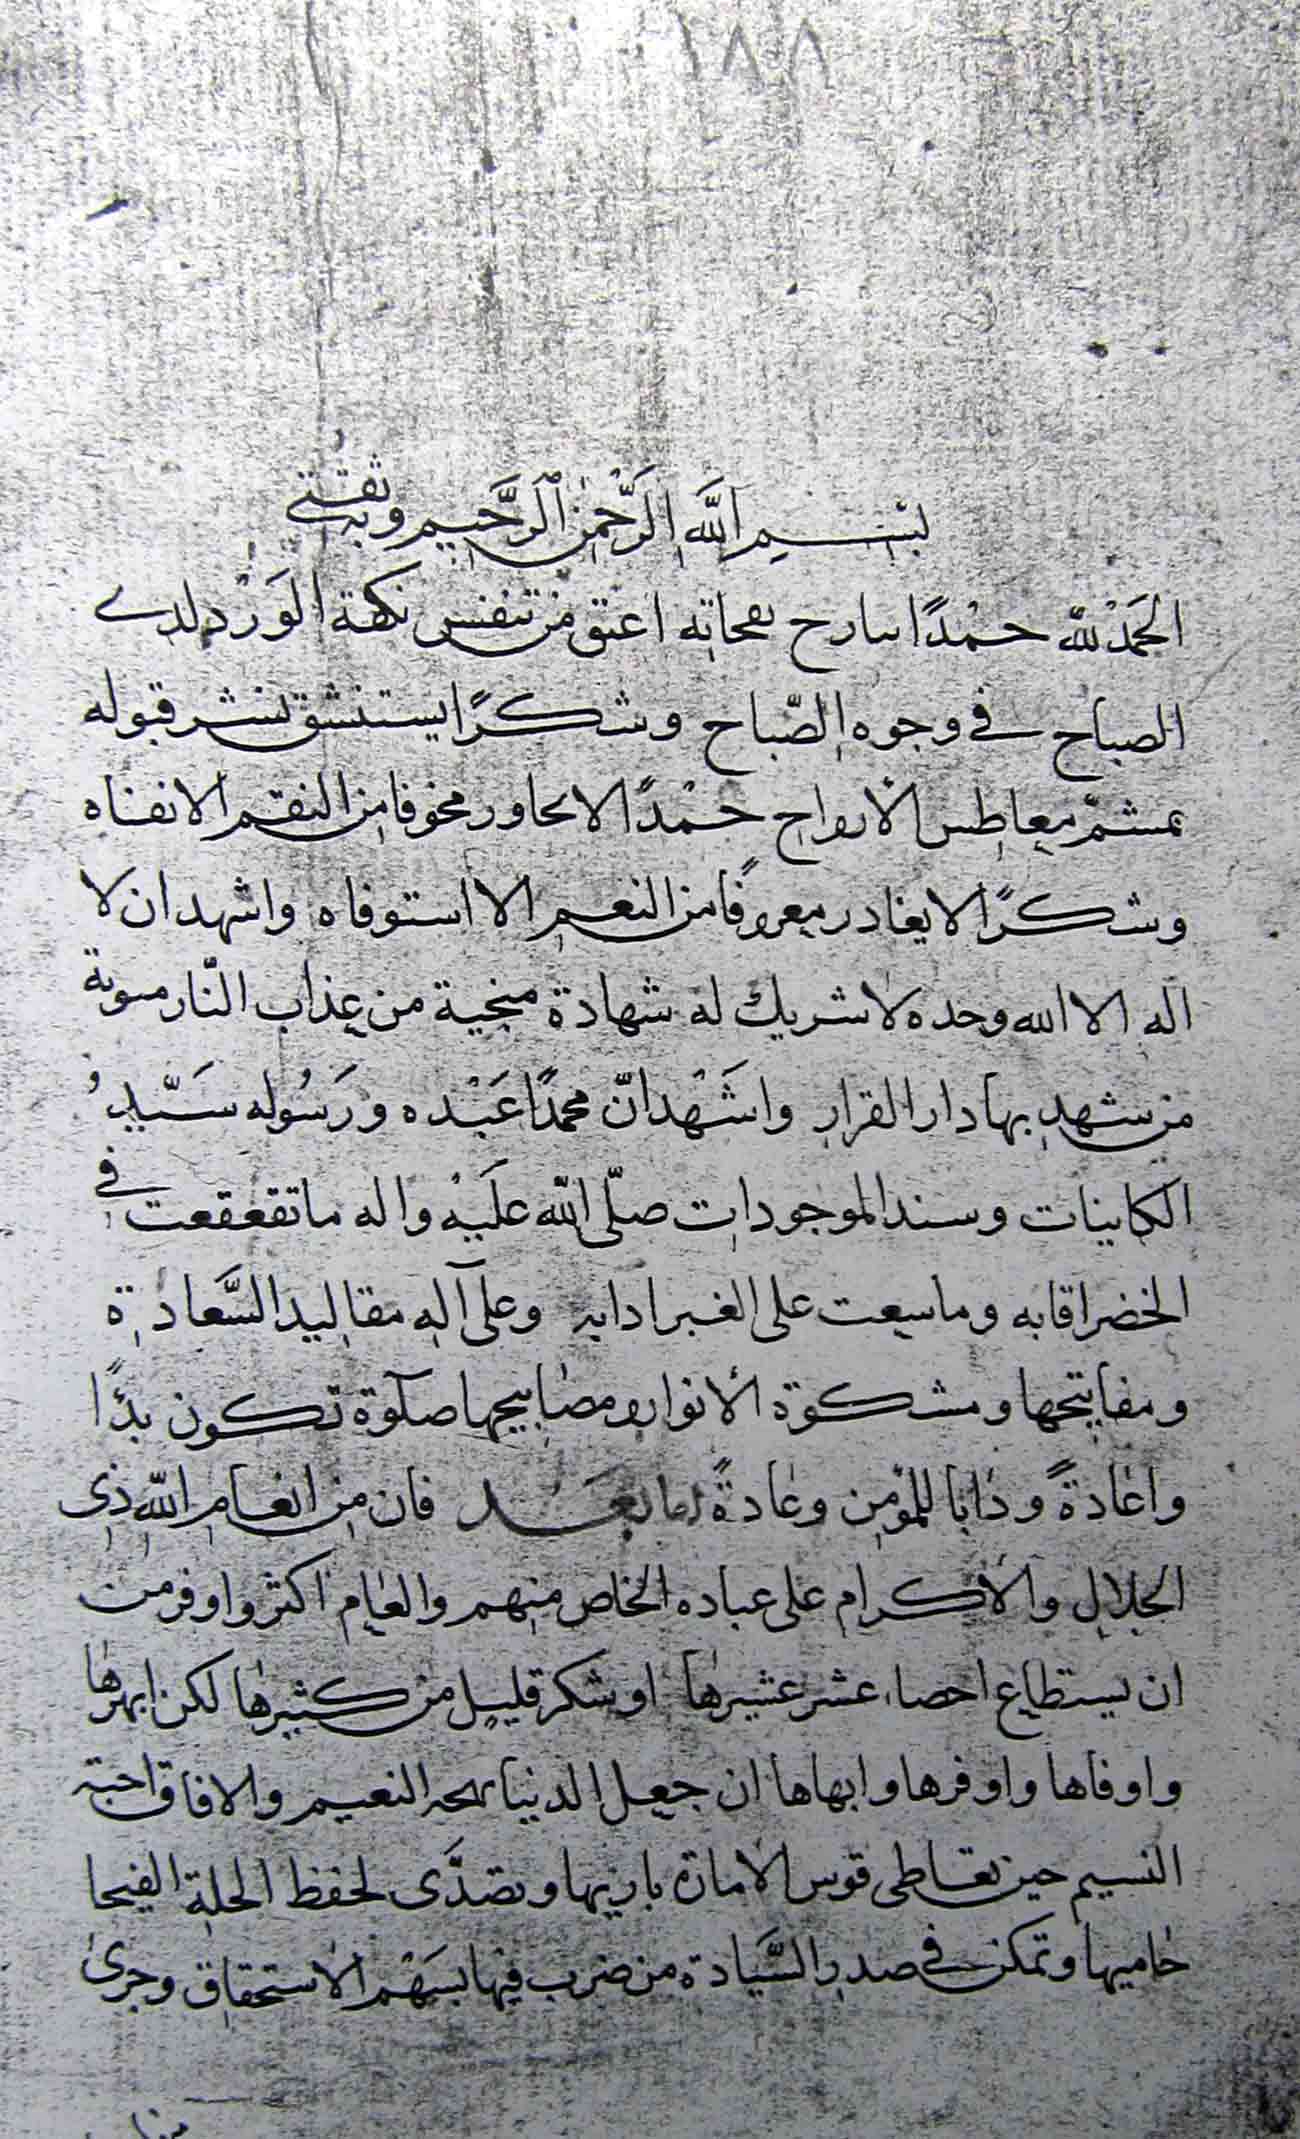 ١٨٨
بسم الله الرحمن الرحيم وبه ثقتي
الحمد لله حمدًا تتأرج نفحاته اعبق من تنفس نكهة الورد لدى
الصباح في وجوه الصّباح وشكرًا يستنشق نشر قبوله
بمشمّ معاطس الأرواح حمدًا لا يحاور مخوفا من النقم الا نفاه
وشكرًا لا يغادر معروفًا من النعم الا استوفاه واشهد ان لا
اله الا الله وحده لا شريك له شهادة منجية من عذاب النّار مبوئة
من شهد بها دار القرار واشهد انّ محمدًا عبده ورسوله سيّد
الكاينات وسند الموجودات صلّى الله عليه واله ما تقعقعت في
الخضرا قابه وما سعت على الغبرا دابه وعلى آله مقاليد السّعادة
ومفاتيحها ومشكوة الأنوار ومصابيحها صلوة تكون بدًا
واعادةً ودابا للمؤمن وعادةً اما بعد فان من انعام الله ذى
الجلال والاكرام على عباده الخاص منهم والعام اكثر واوفر من
ان يستطاع احصاء عشر عشيرها او شكر قليل من كثيرها لكن ابهرها
واوفاها واوفرها وابهاها ان جعل الدنيا بهجه النعيم والافاق
النسيم حين تعاطى قوس الامارة باريها وتصدّى لحفظ الحلة الفيحا
حاميها وتمكن في صدر السّيادة من ضرب فيها بسهم الاستحقاق وجرى